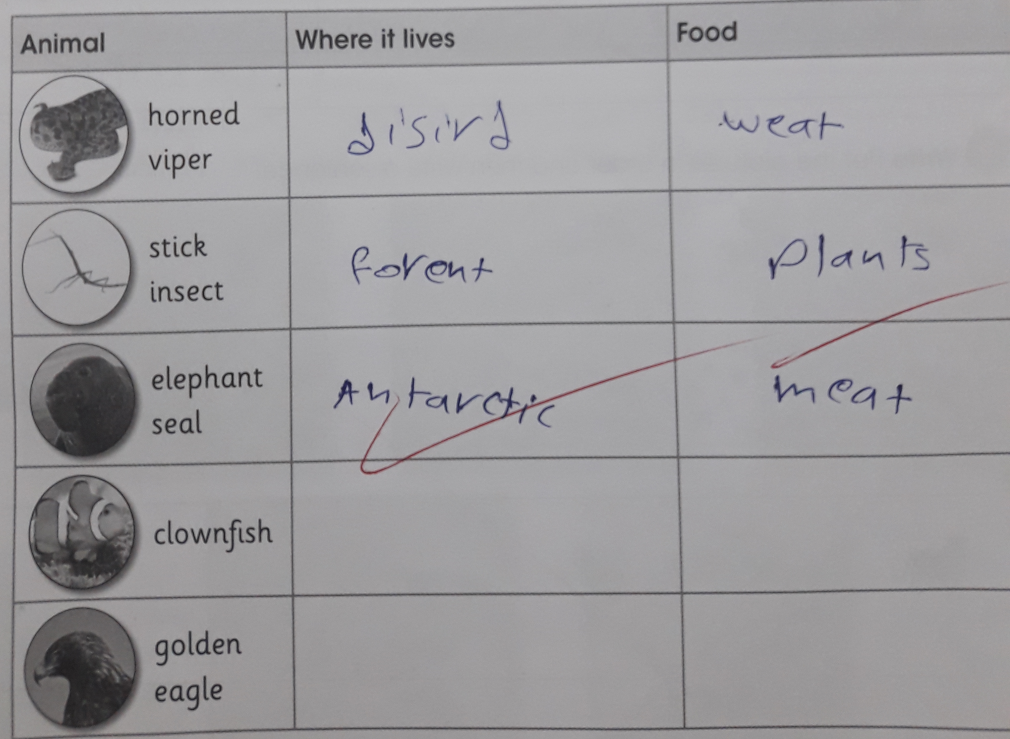 Animal Where it lives Food
horned
viper
disird weat
stick
insect
forent plants
elephant
seal
Antarctic meat
clownfish
golden
eagle